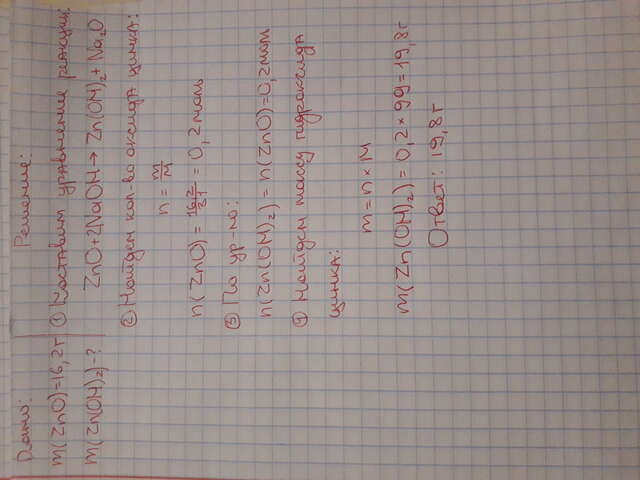 Дано:
m(ZnO)=16,2г
m(Zn(OH)₂)-?
Решение:
① Составим уравнение реакции:
ZnO+2NaOH→Zn(OH)₂+Na₂O
② Найдем кол-во оксида цинка:
n = m/M
n(ZnO) = 16,2/81 = 0,2моль
③ По ур-ию:
n(Zn(OH)₂) = n(ZnO)=0,2моль
④ Найдем массу гидроксида
цинка:
m = n × M
m(Zn(OH)₂) = 0,2 × 99 = 19,8г
Ответ: 19,8г